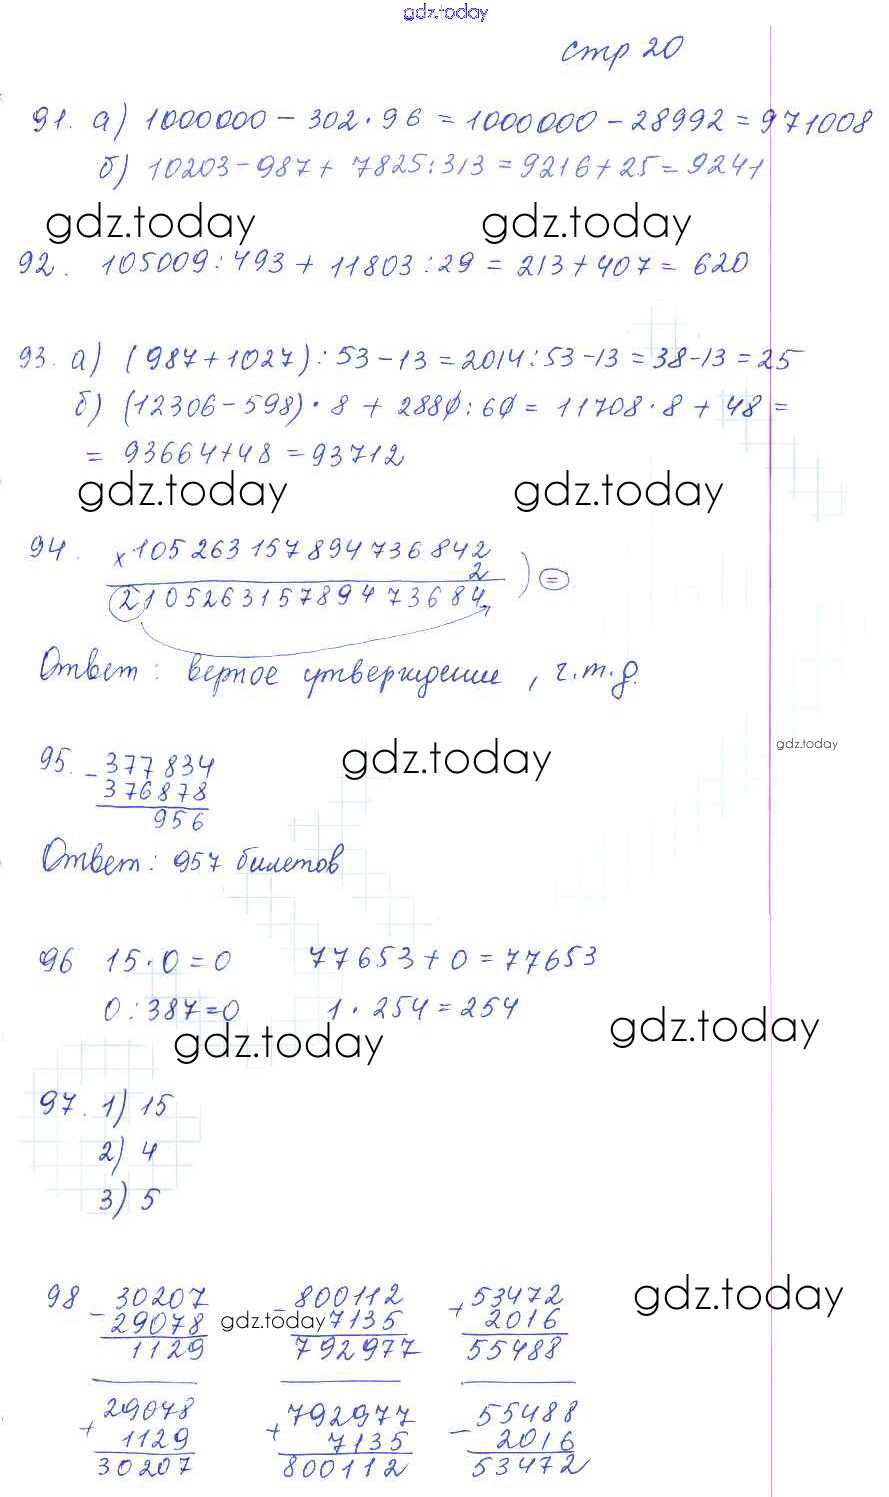 gdz.today
стр 20
91. а) 1000000 - 302 · 96 = 1000000 - 28992 = 971008
б) 10203 - 987 + 7825 : 313 = 9216 + 25 = 9241
gdz.today gdz.today
92. 105009 : 493 + 11803 : 29 = 213 + 407 = 620
93. а) (987 + 1027) : 53 - 13 = 2014 : 53 - 13 = 38 - 13 = 25
б) (12306 - 598) · 8 + 2880 : 60 = 11708 · 8 + 48 =
= 93664 + 48 = 93712
gdz.today gdz.today
94. x 105263157894736842
2 ) =
210526315789473684
Ответ: верное утверждение, ч.т.д.
gdz.today
95. - 377834 gdz.today
376878
956
Ответ: 957 билетов
96 15 · 0 = 0 77653 + 0 = 77653
0 : 387 = 0 1 · 254 = 254
gdz.today gdz.today
97. 1) 15
2) 4
3) 5
98 - 30207 - 800112 + 53472 gdz.today
29078 gdz.today 7135 2016
1129 792977 55488
29078 792977 55488
+ 1129 + 7135 - 2016
30207 800112 53472